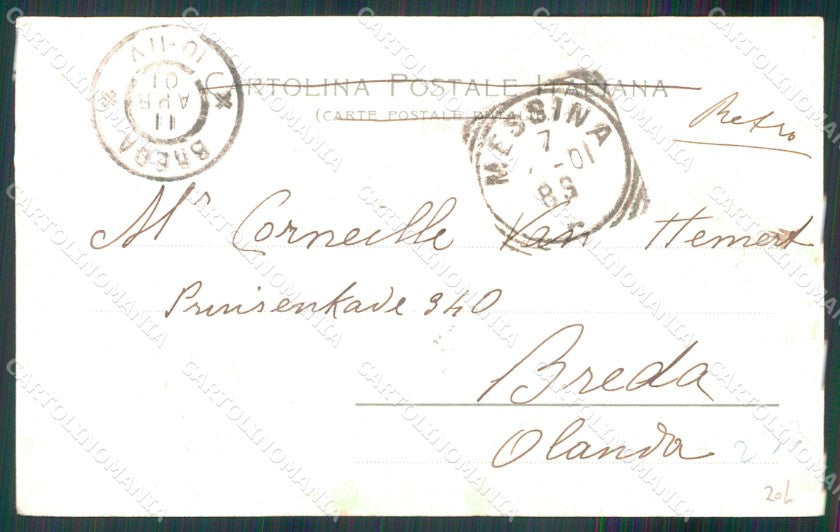 CARTOLINA POSTALE ITALIANA
(CARTE POSTALE
Retro
BREDA
11
APR
01
10-11V
MESSINA
7
-01
8S
Mr Corneille Van Hemert
Prinsenkade 340
Breda
Olanda
20h
CARTOLINOMANIA